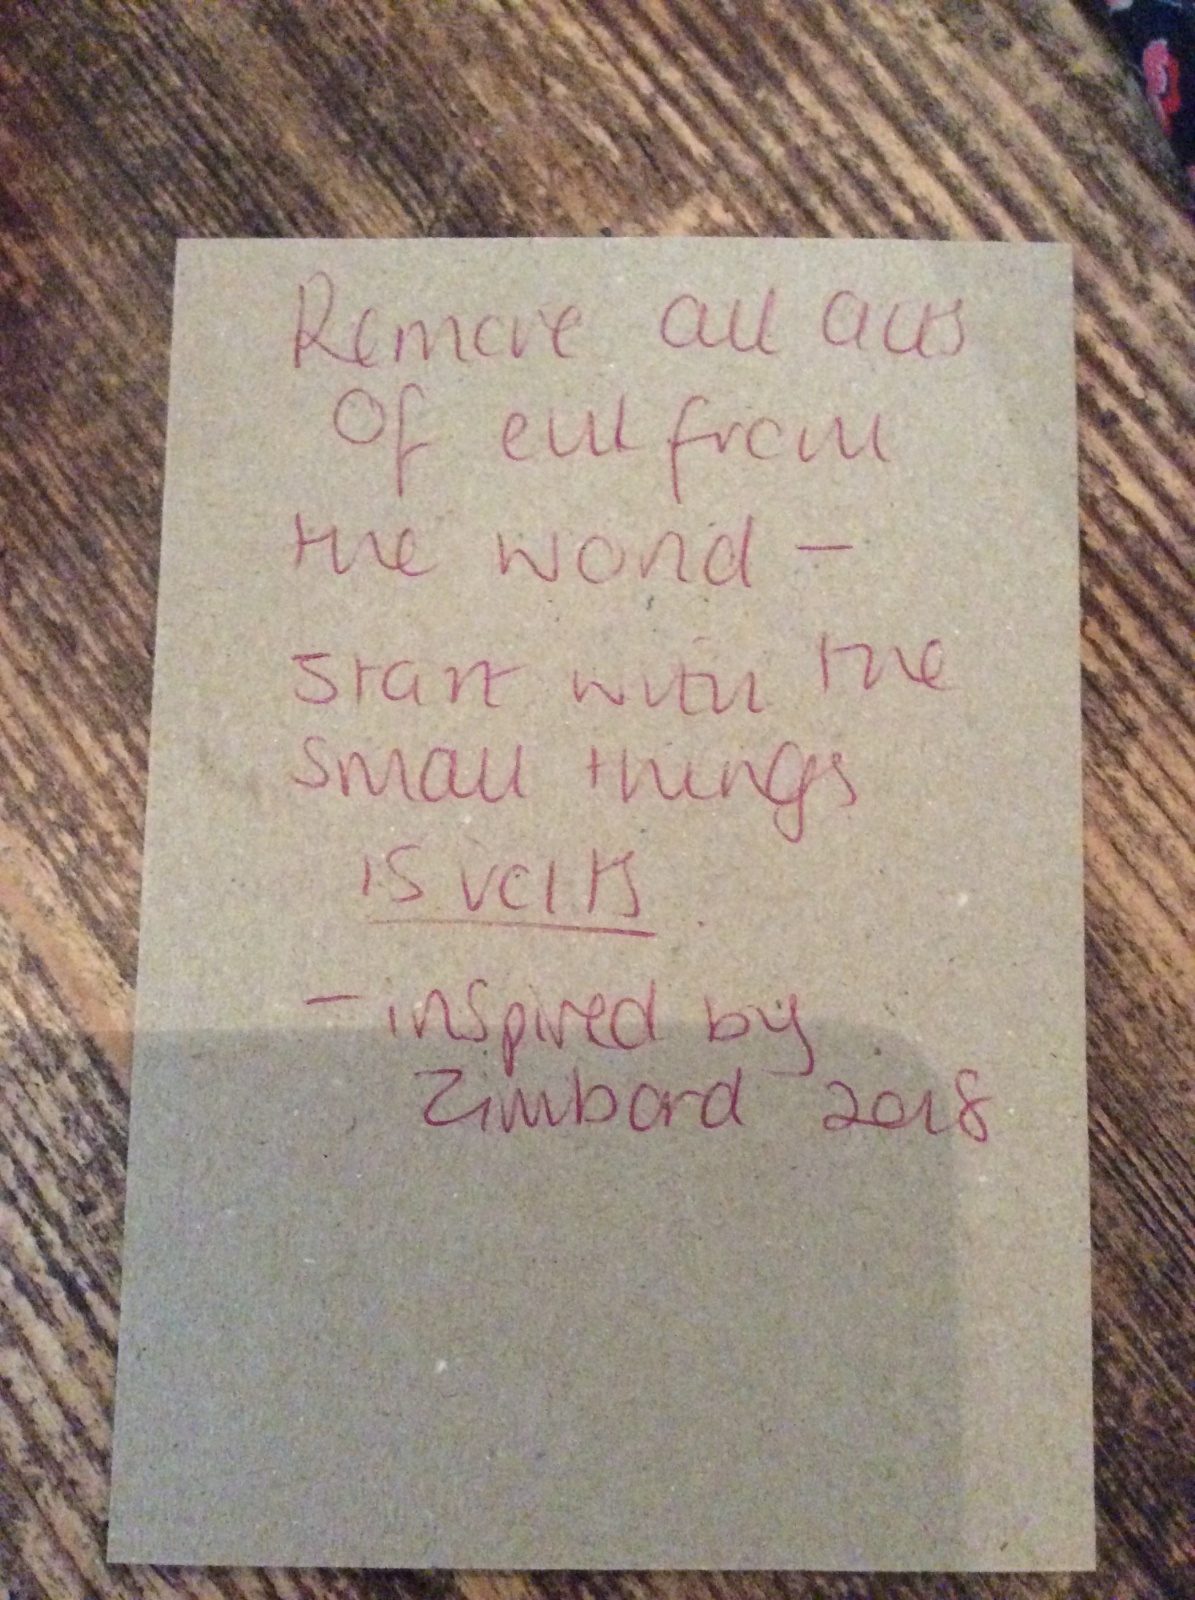 Remove all acts
Of evil from
the world —
Start with the
small things
15 volts
— inspired by
Zimbard 2018